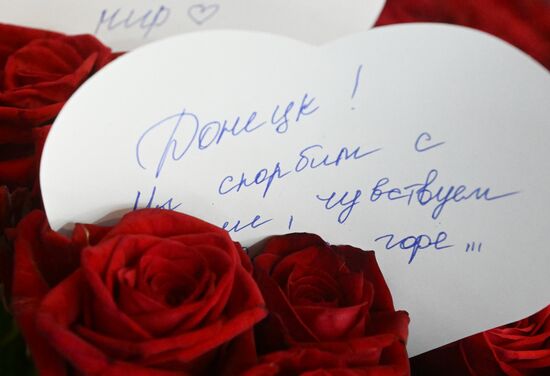 мир ♡
Донецк!
Мы скорбим с
, чувствуем
горе...